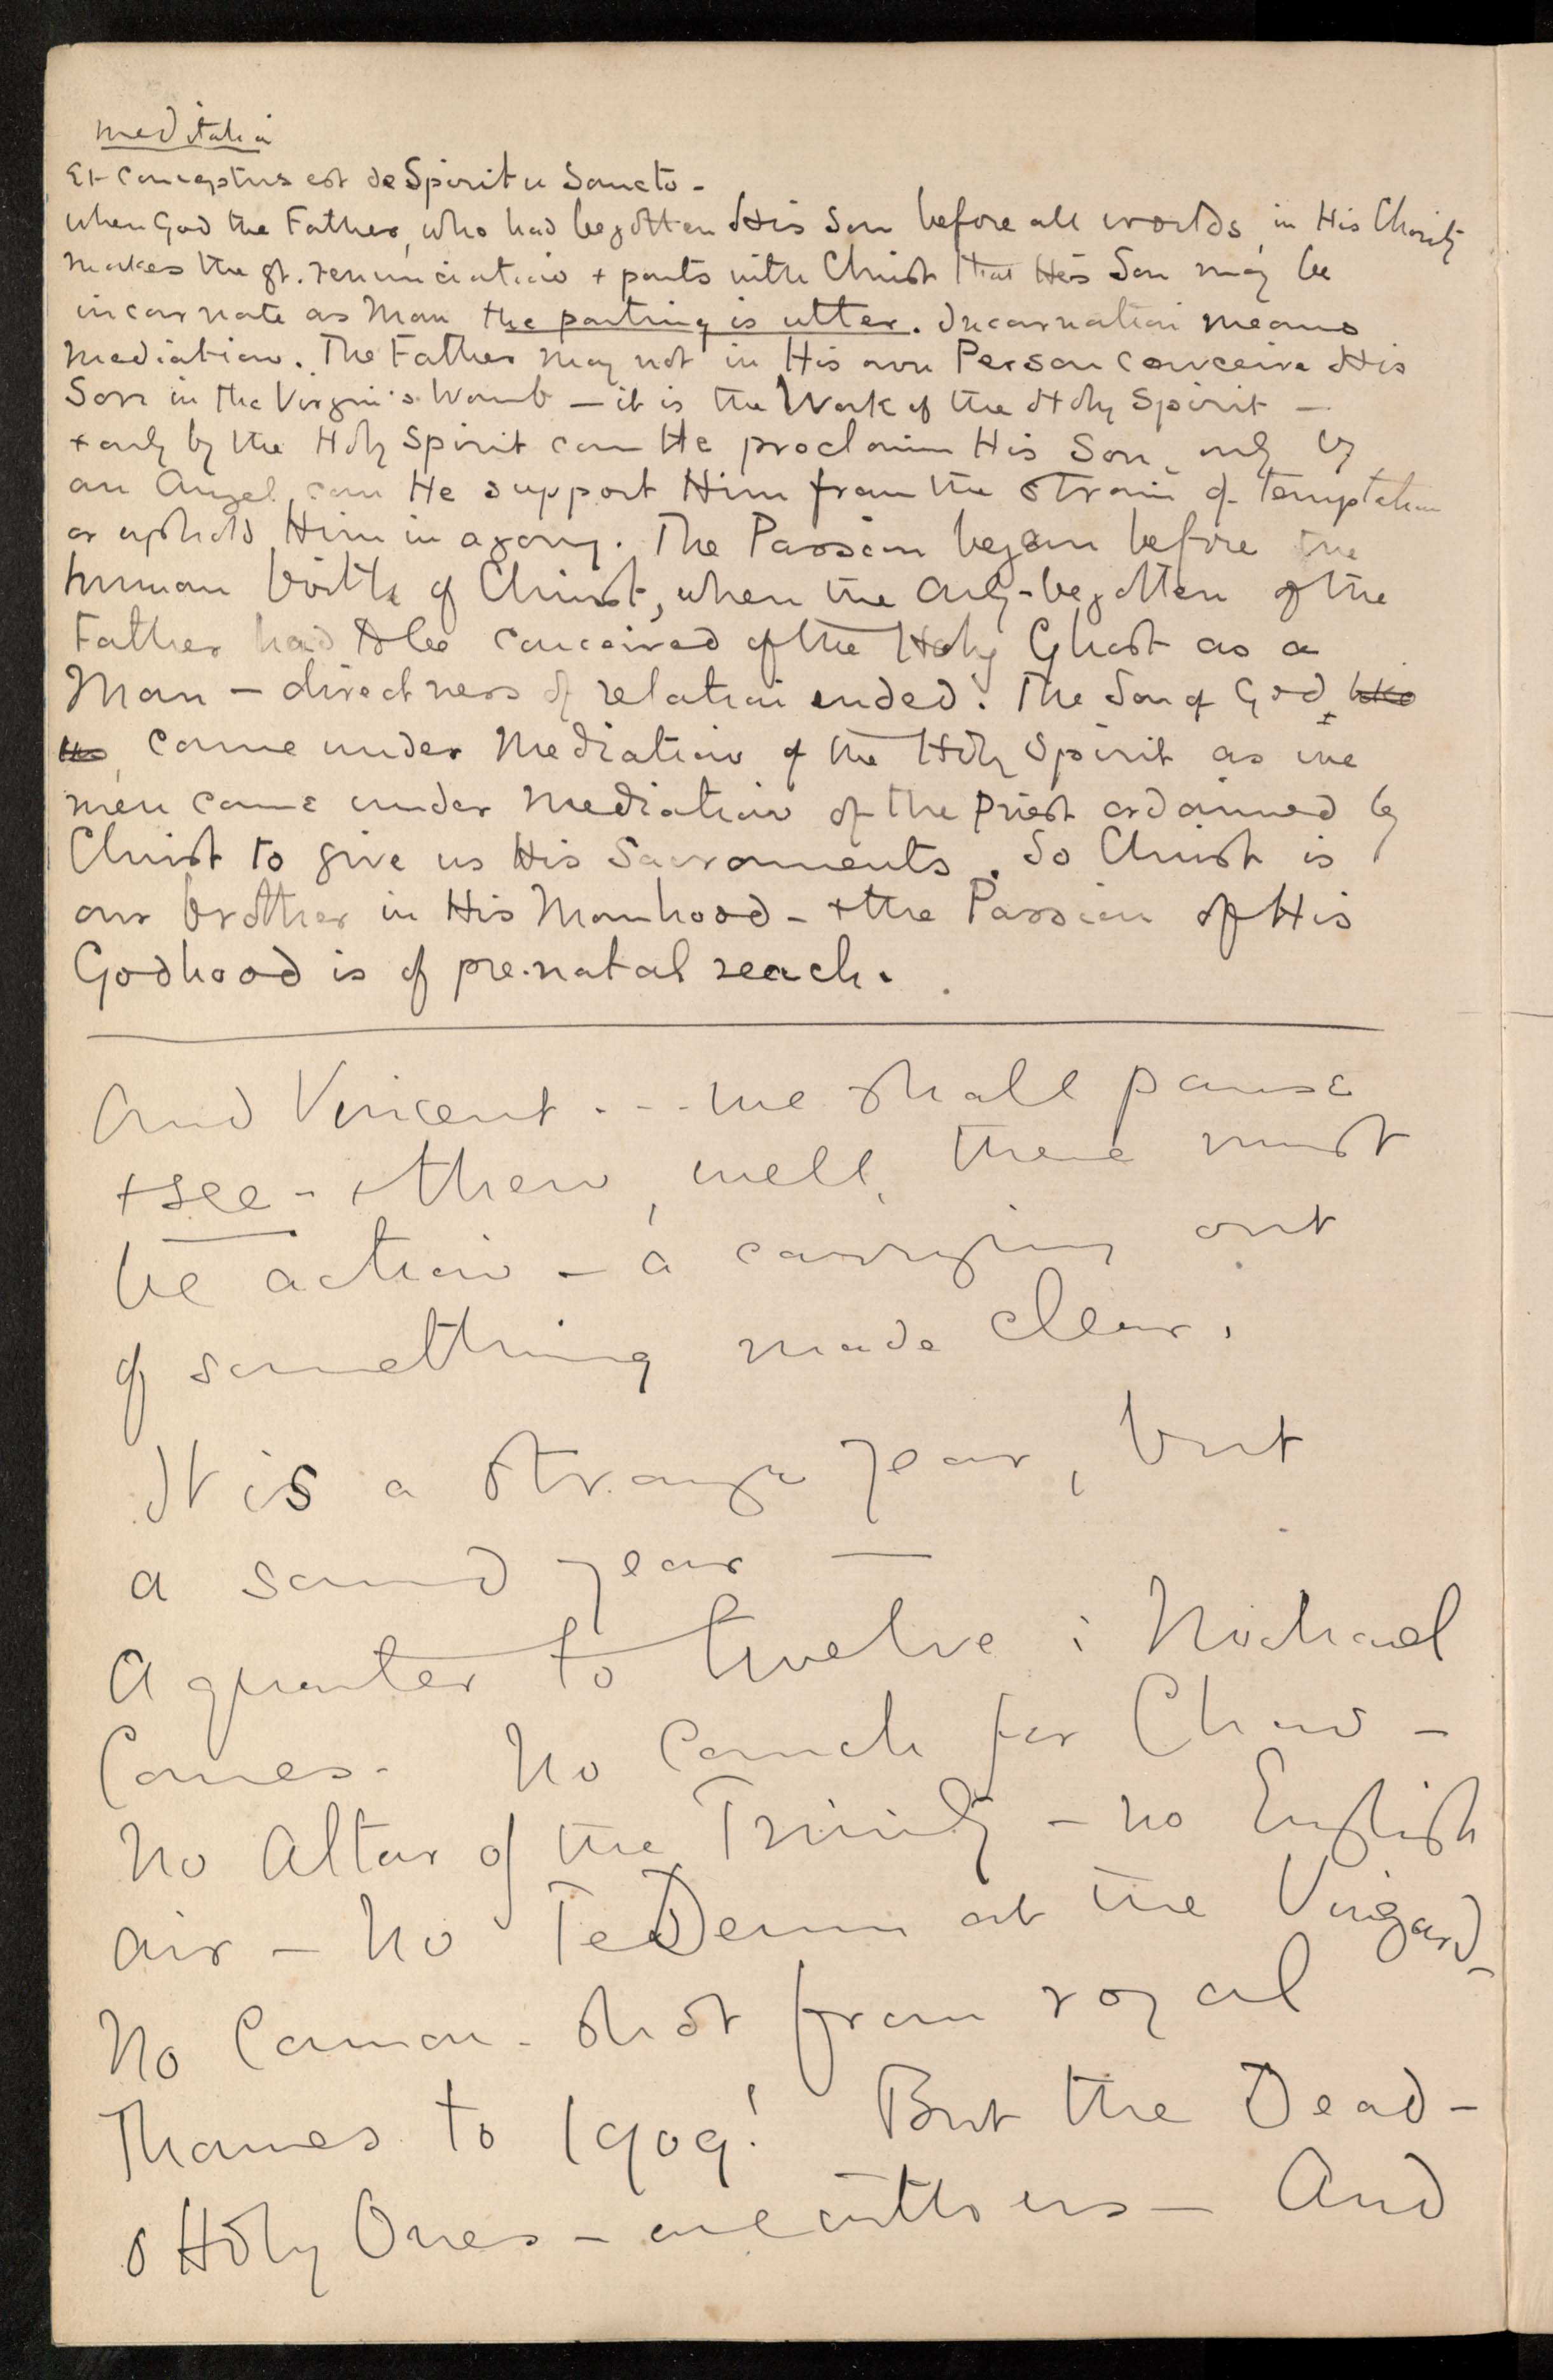 Meditation
Et conceptus est de Spiritu Sancto -
When God the Father, who had begotten His Son before all worlds, in His Charity
makes the gt. renunciation + parts with Christ that His Son may be
incarnate as Man the parting is utter. Incarnation means
Mediation. The Father may not in His own Person conceive His
Son in the Virgin's Womb — it is the Work of the Holy Spirit —
+ only by the Holy Spirit can He proclaim His Son, only by
an Angel can He support Him from the strain of temptation
or uphold Him in agony. The Passion began before the
human birth of Christ, when the Only-begotten of the
Father had to be conceived of the Holy Ghost as a
Man — directness of relation ended. The Son of God
came under Mediation of the Holy Spirit as we
men came under Mediation of the Priest ordained by
Christ to give us His Sacraments. So Christ is
our brother in His Manhood - + the Passion of His
Godhood is of pre-natal reach.
And Vincent . - - we shall pause
+ see - + then, well, there must
be action — a carrying out
of something made clear.
It is a strange year, but
a sound year —
A quarter to twelve: Michael
Comes. No Couch for Chow —
No Altar of the Trinity — no English
air — No Te Deum at the Vineyard —
No Cannon-shot from royal
Thames to 1909! But the Dead —
o Holy Ones — are with us — And